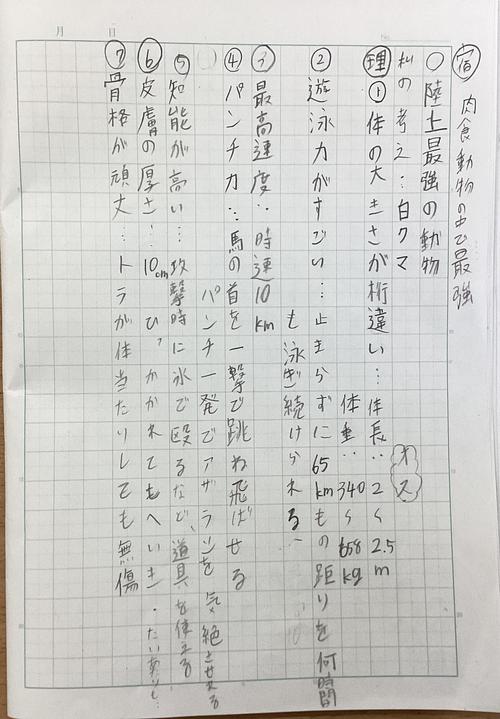 月　日
宿　肉食動物の中で最強
○陸上最強の動物
私の考え…白クマ
オス
理①体の大きさが桁違い…体長：2～2.5m
体重：340～658kg
②遊泳力がすごい…止まらずに65kmもの距りを何時間
も泳ぎ続けられる
③最高速度：時速10km
④パンチ力…馬の首を一撃で跳ね飛ばせる
パンチ一発でアザラシを気絶させる
⑤知能が高い…攻撃時に氷で殴るなど、道具を使える
⑥皮膚の厚さ…10cm　ひっかかれてもへいき・
⑦骨格が頑丈…トラが体当たりしても無傷